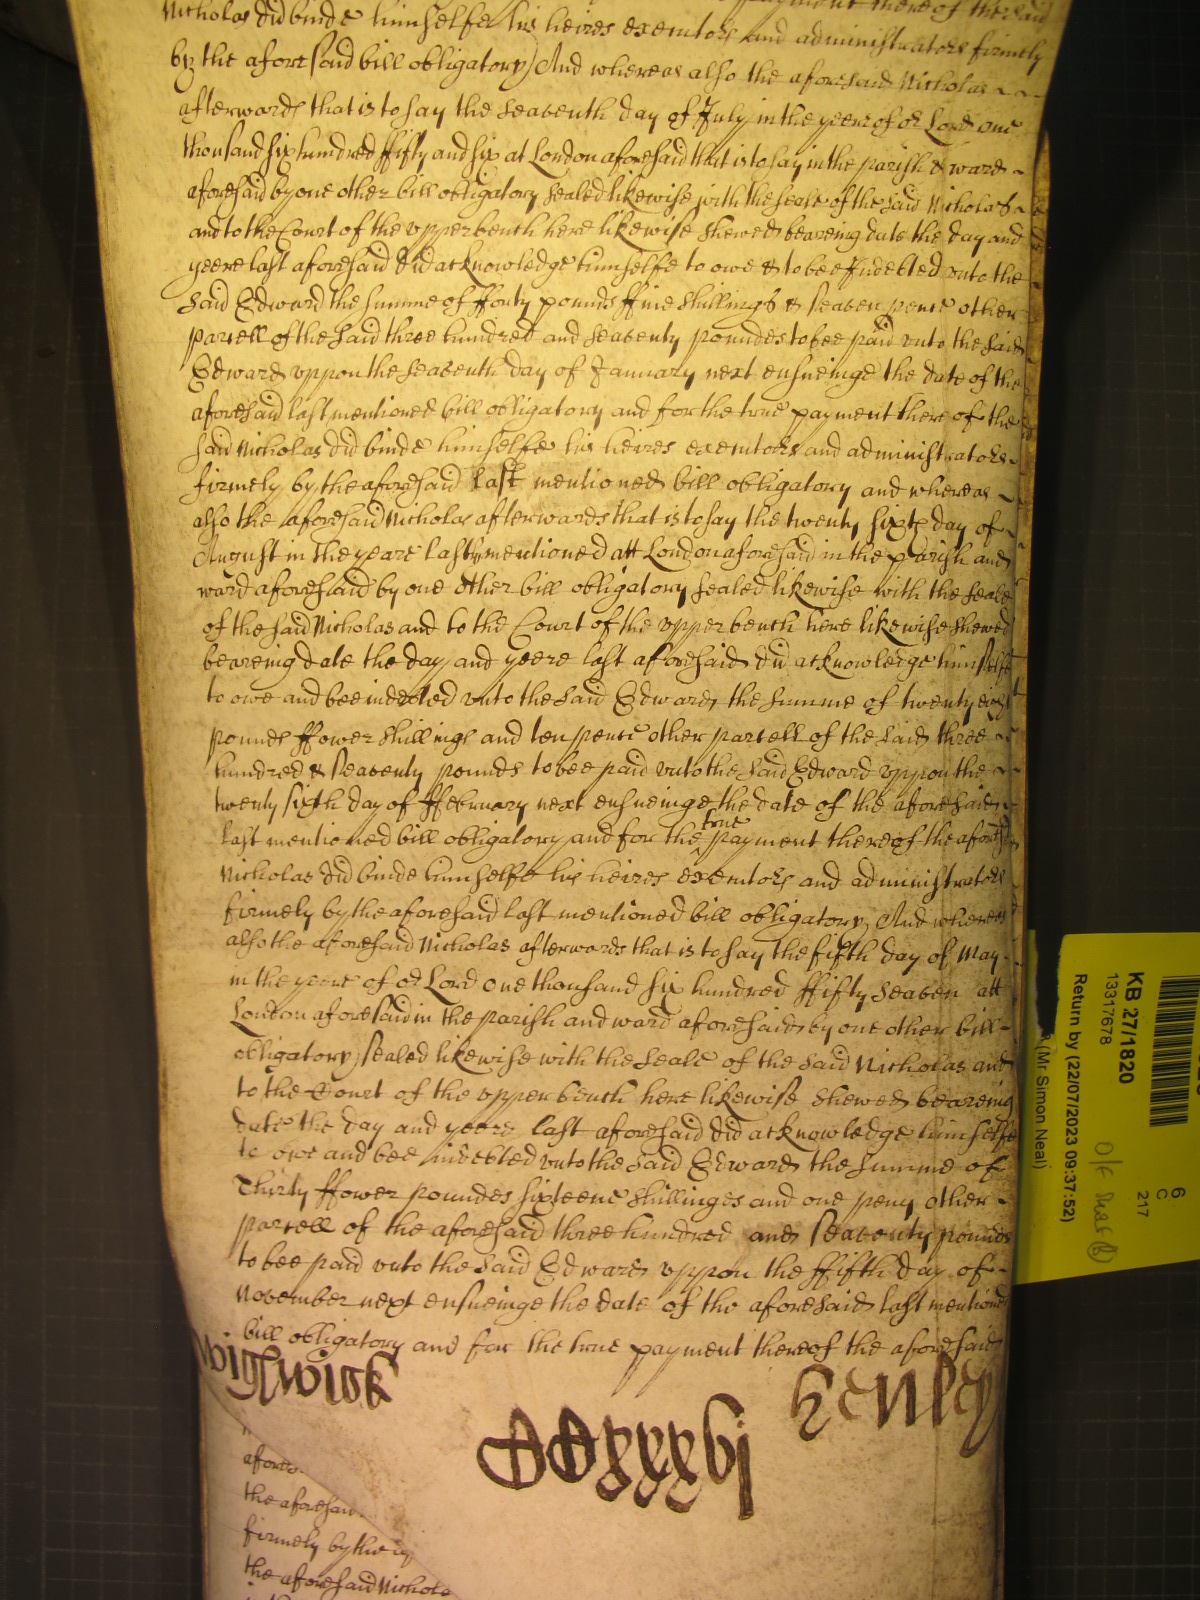 payment thereof the said
Nicholas did binde himselfe his heires executors and administrators firmely
by the aforesaid bill obligatory And whereas also the aforesaid Nicholas
afterwards that is to say the Seaventh day of July in the yeere of or Lord one
thousand six hundred ffifty and six at London aforesaid that is to say in the parish & ward
aforesaid by one other bill obligatory sealed likewise with the seale of the said Nicholas
and to the Court of the upper bench here likewise shewed beareing date the day and
yeere last aforesaid did acknowledge himselfe to owe & to bee Indebted unto the
said Edward the summe of fforty pounds ffive shillings & seaven pence other
parcell of the said three hundred and seaventy poundes to bee paid unto the said
Edward uppon the seaventh day of January next ensueinge the date of the
aforesaid last mentioned bill obligatory and for the true payment thereof the
said Nicholas did binde himselfe his heires executors and administrators
firmely by the aforesaid last mentioned bill obligatory and whereas
also the aforesaid Nicholas afterwards that is to say the twenty sixth day of
August in the yeare last mentioned att London aforesaid in the parish and
ward aforesaid by one other bill obligatory sealed likewise with the seale
of the said Nicholas and to the Court of the upper bench here likewise shewed
beareing date the day and yeere last aforesaid did acknowledge himselfe
to owe and bee indebted unto the said Edward the summe of twenty eight
pounds ffower shillings and ten pence other parcell of the said three
hundred & seaventy pounds to bee paid unto the said Edward uppon the
twenty sixth day of ffebruary next ensueinge the date of the aforesaid
last mentioned bill obligatory and for the true payment thereof the aforesd
Nicholas did binde himselfe his heires executors and administrators
firmely by the aforesaid last mentioned bill obligatory And whereas
also the aforesaid Nicholas afterwards that is to say the fifth day of May
in the yeere of or Lord one thousand six hundred ffifty seaven att
London aforesaid in the parish and ward aforesaid by one other bill
obligatory sealed likewise with the seale of the said Nicholas and
to the Court of the upper bench here likewise shewed beareing
date the day and yeere last aforesaid did acknowledge himselfe
to owe and bee indebted unto the said Edward the summe of
Thirty ffower poundes sixteene shillinges and one peny other
parcell of the aforesaid three hundred and seaventy pounds
to bee paid unto the said Edward uppon the ffifth day of
November next ensueinge the date of the aforesaid last mentioned
bill obligatory and for the true payment thereof the aforesaid
Wightwick
Henley
CCxxxvj
the aforesaid
firmely by the
the aforesaid Nichola
KB 27/1820
13317678
Return by (22/07/2023 09:37:52)
(Mr Simon Neal)
6
C
217